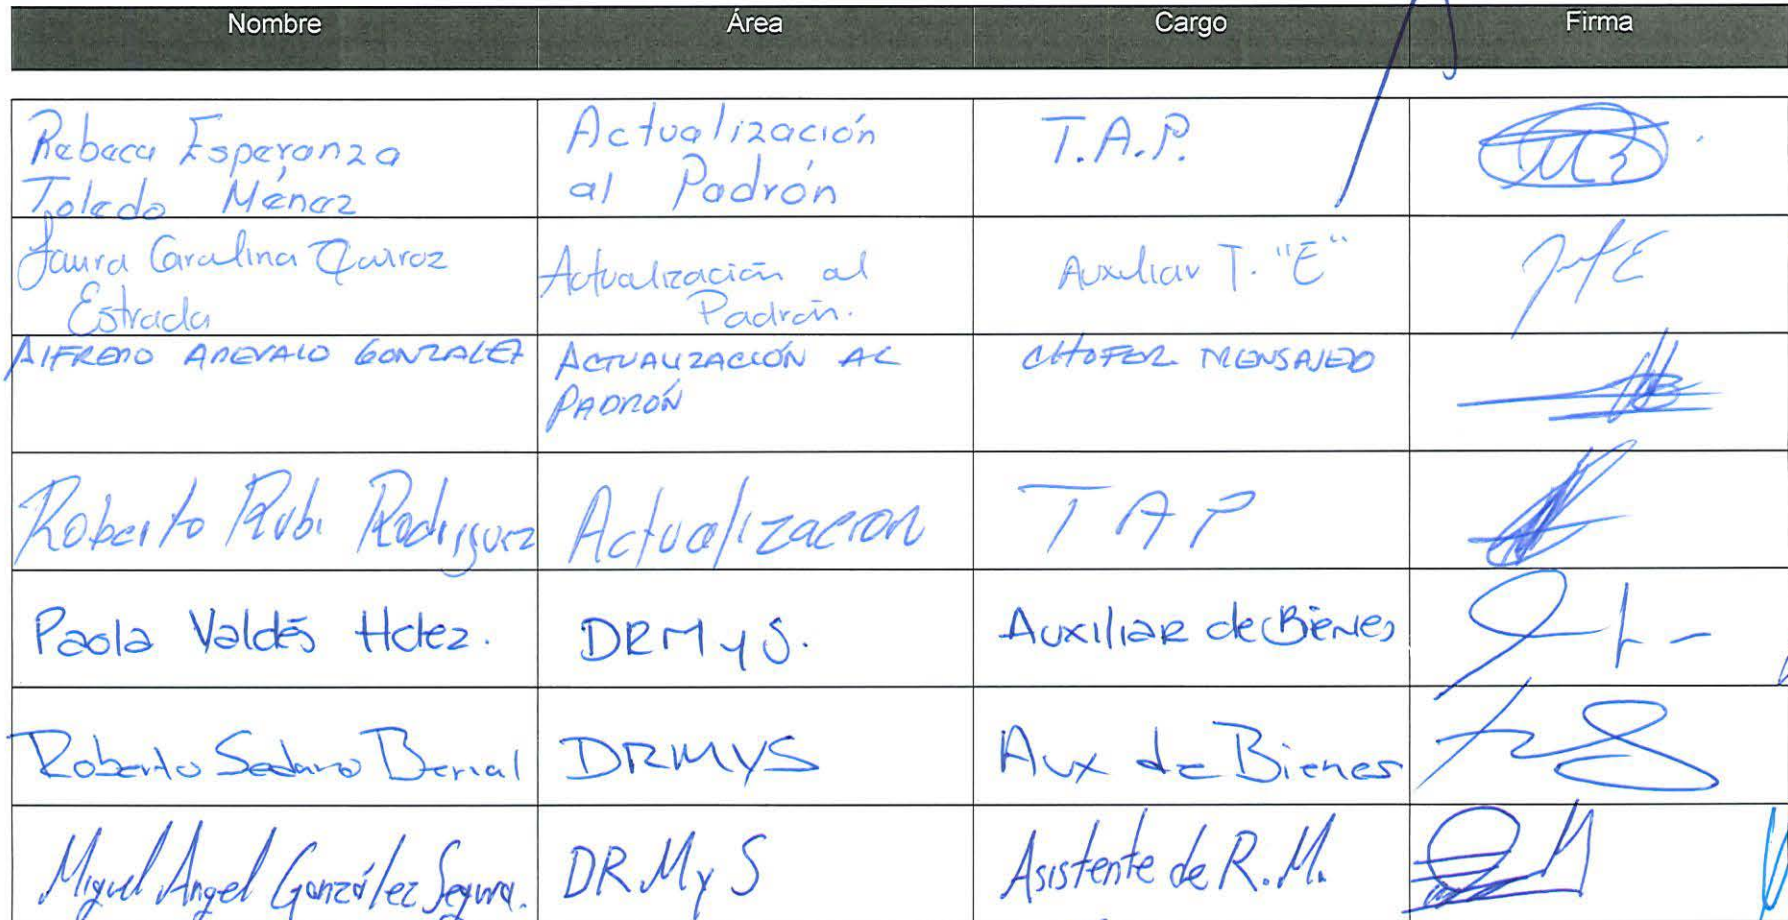 Nombre Área Cargo Firma
Rebeca Esperanza
Toledo Ménez
Actualización
al Padrón
T.A.P.
Laura Carolina Quiroz
Estrada
Actualización al
Padrón.
Auxiliar T. "E"
ALFREDO AREVALO GONZALEZ
ACTUALIZACIÓN AL
PADRÓN
CHOFER MENSAJERO
Roberto Rubi Rodriguez
Actualizacion
T A P
Paola Valdés Hdez.
DRM y S.
Auxiliar de Bienes
Roberto Sedano Bernal
DRMYS
Aux de Bienes
Miguel Angel González Segura.
DR.M y S
Asistente de R.M.